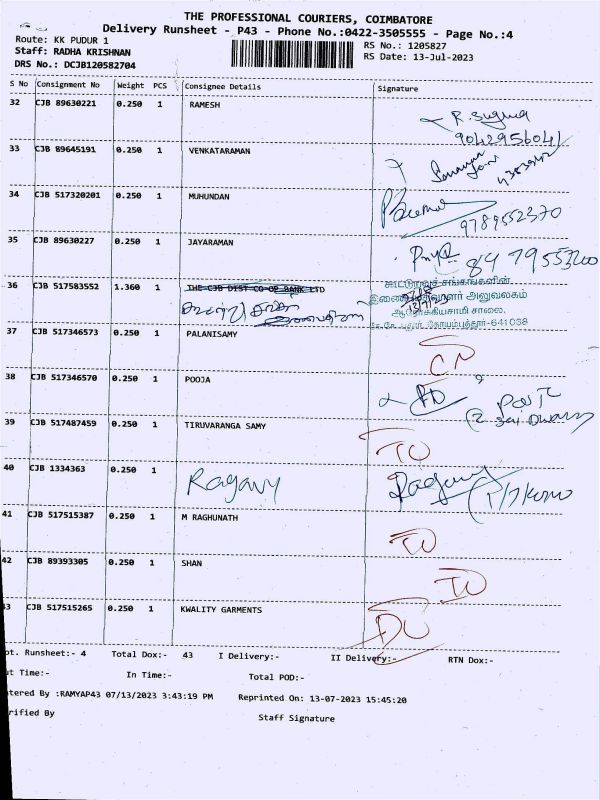 THE PROFESSIONAL COURIERS, COIMBATORE
Delivery Runsheet - P43 - Phone No.:0422-3505555 - Page No.:4
Route: KK PUDUR 1
RS No.: 1205827
Staff: RADHA KRISHNAN
RS Date: 13-Jul-2023
DRS No.: DCJB120582704
S No Consignment No Weight PCS Consignee Details Signature
32 CJB 89630221 0.250 1 RAMESH
9042956041
33 CJB 89645191 0.250 1 VENKATARAMAN
34 CJB 517320201 0.250 1 MUHUNDAN
9789552370
35 CJB 89630227 0.250 1 JAYARAMAN
36 CJB 517583552 1.360 1 THE CJB DIST CO OP BANK LTD
கூட்டுறவுச் சங்கங்களின்
அலுவலகம்
சாலை,
கோயம்புத்தூர்-641038
37 CJB 517346573 0.250 1 PALANISAMY
38 CJB 517346570 0.250 1 POOJA
39 CJB 517487459 0.250 1 TIRUVARANGA SAMY
40 CJB 1334363 0.250 1 Ragavy Ragavy
41 CJB 517515387 0.250 1 M RAGHUNATH
42 CJB 89393305 0.250 1 SHAN
43 CJB 517515265 0.250 1 KWALITY GARMENTS
ot. Runsheet:- 4 Total Dox:- 43 I Delivery:- II Delivery:- RTN Dox:-
ut Time:- In Time:- Total POD:-
ntered By :RAMYAP43 07/13/2023 3:43:19 PM Reprinted On: 13-07-2023 15:45:20
rified By Staff Signature